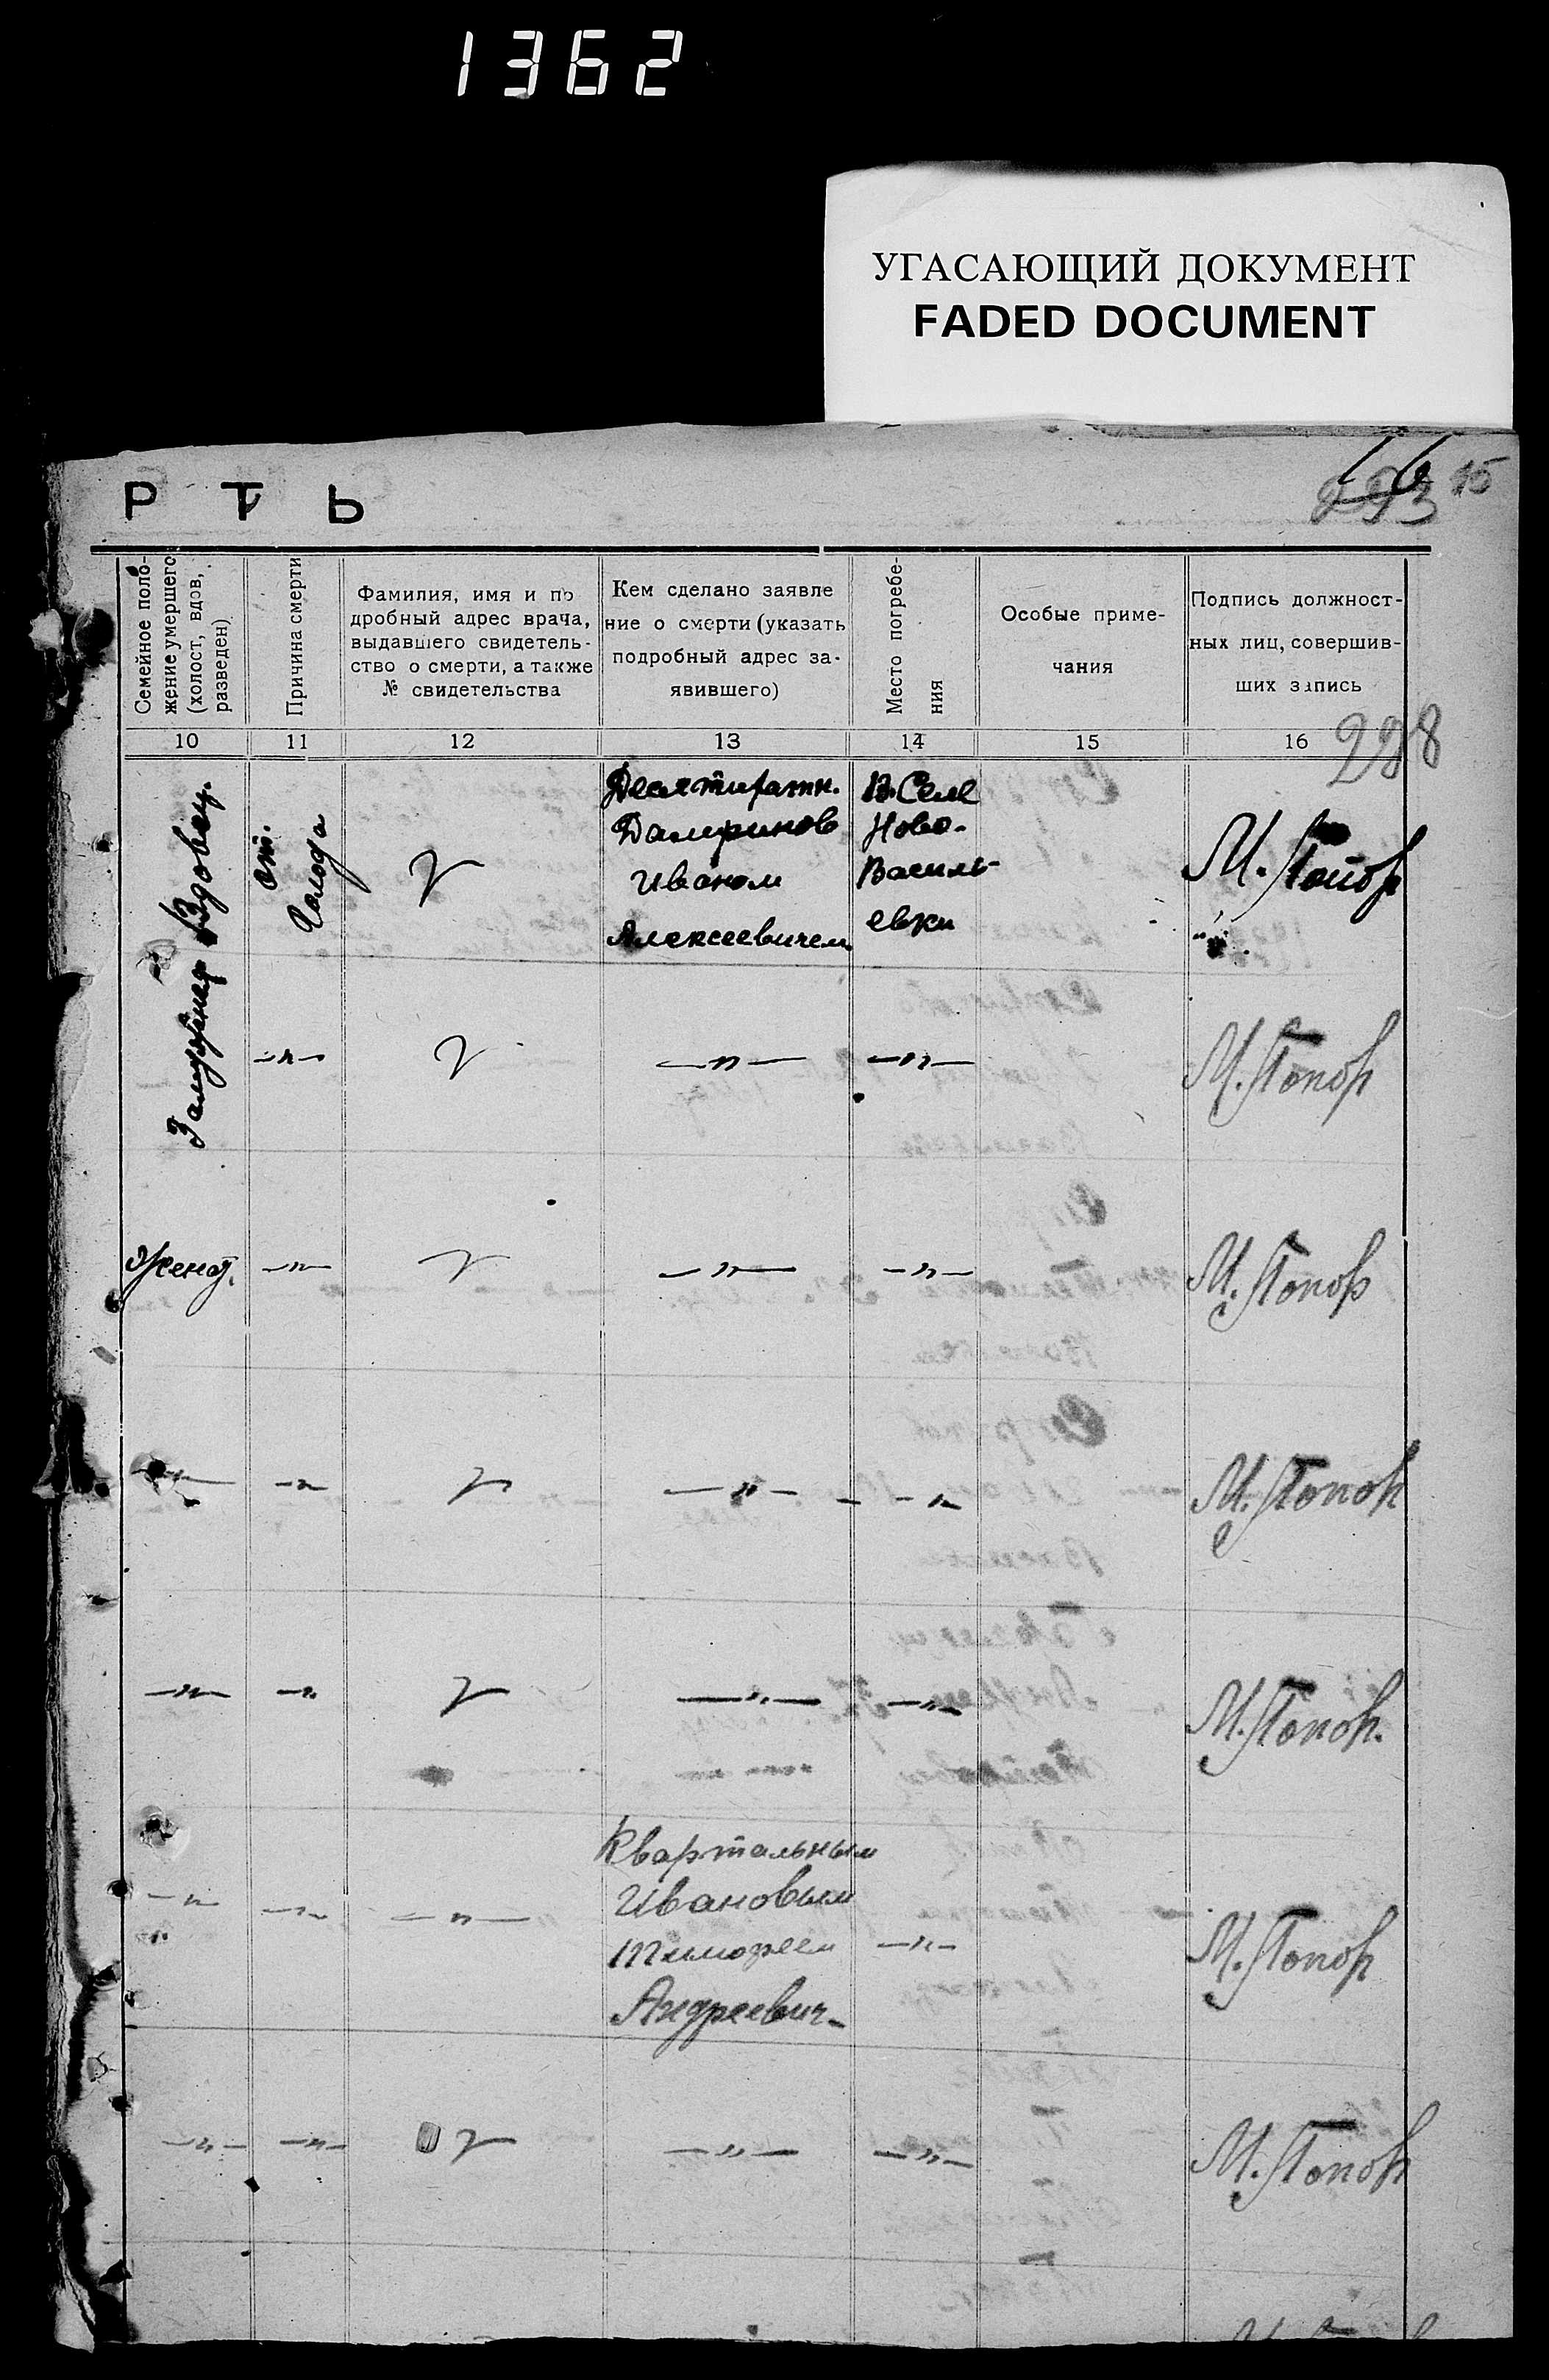 1362
УГАСАЮЩИЙ ДОКУМЕНТ
FADED DOCUMENT
16 15
Р Т Ь
Семейное поло-
жение умершего
(холост, вдов,
разведен)
Причина смерти
Фамилия, имя и по
дробный адрес врача,
выдавшего свидетель-
ство о смерти, а также
№ свидетельства
Кем сделано заявле
ние о смерти (указать
подробный адрес за-
явившего)
Место погребе-
ния
Особые приме-
чания
Подпись должност-
ных лиц, совершив-
ших запись
10 11 12 13 14 15 16
298
Вдовец.
от.
Голода
Иваном
Алексеевичем
В. Селе
Ново-
Василь-
евки
М. Попов
Замужняя
—"— —"— —"—
М. Попов
Женат.
—"— —"— —"—
М. Попов
—"— —"— —"— —"—
М. Попов
—"— —"— —"— —"—
М. Попов.
—"— —"— —"—
Квартальным
Ивановым
Тимофеем
Андреевич-
—"—
М. Попов
—"— —"— —"— —"—
М. Попов